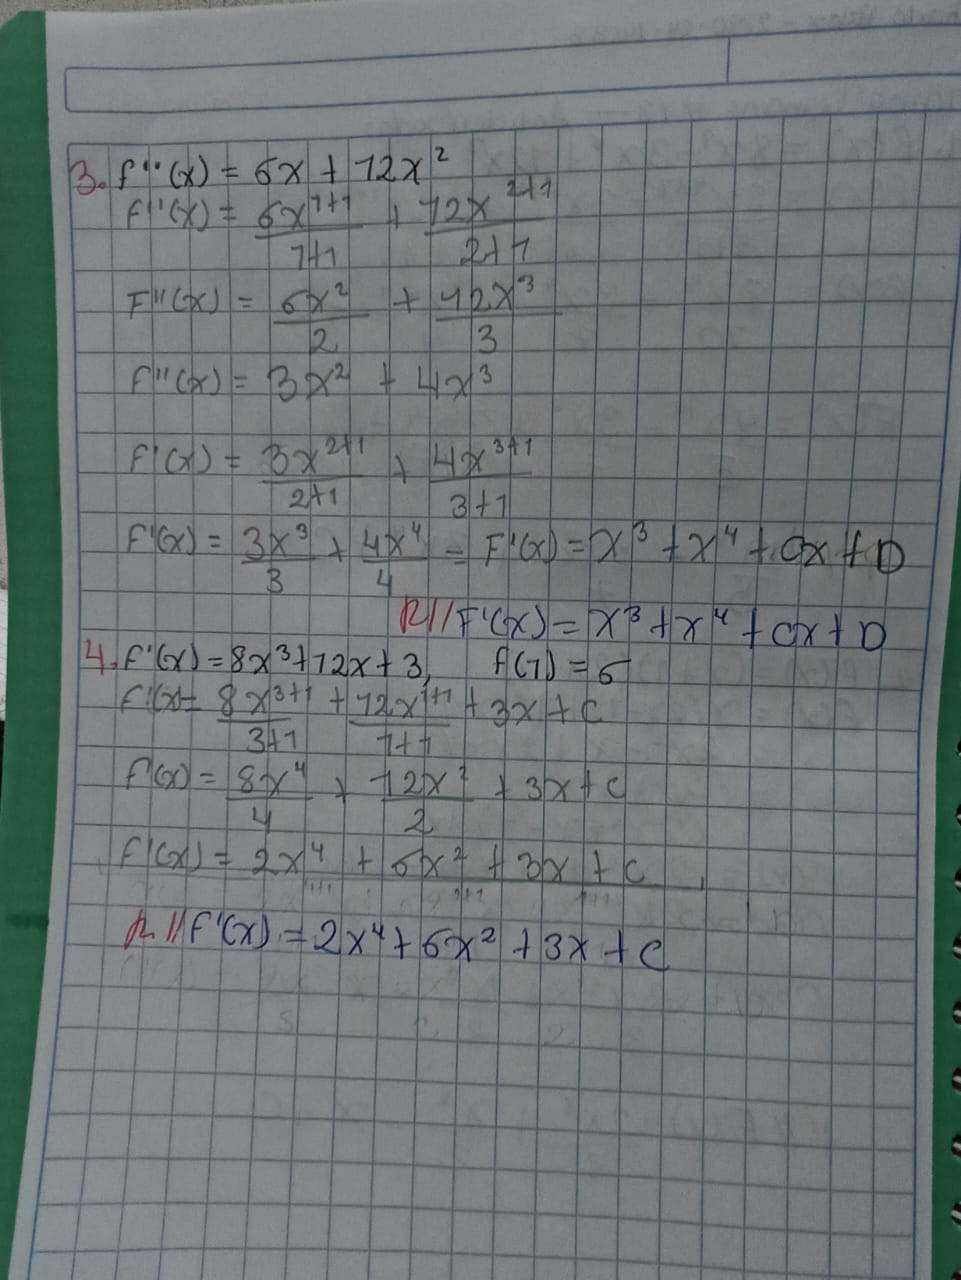 3. f''(x) = 6x + 12x²
F''(x) = 6x¹⁺¹/1+1 + 12x²⁺¹/2+1
F''(x) = 6x²/2 + 12x³/3
F''(x) = 3x² + 4x³
F'(x) = 3x²⁺¹/2+1 + 4x³⁺¹/3+1
F'(x) = 3x³/3 + 4x⁴/4 = F'(x) = x³ + x⁴ + Cx + D
R// F'(x) = x³ + x⁴ + Cx + D
4. f'(x) = 8x³ + 12x + 3, f(1) = 6
f'(x) = 8x³⁺¹/3+1 + 12x¹⁺¹/1+1 + 3x + C
f'(x) = 8x⁴/4 + 12x²/2 + 3x + C
f'(x) = 2x⁴ + 6x² + 3x + C
R.// f'(x) = 2x⁴ + 6x² + 3x + C